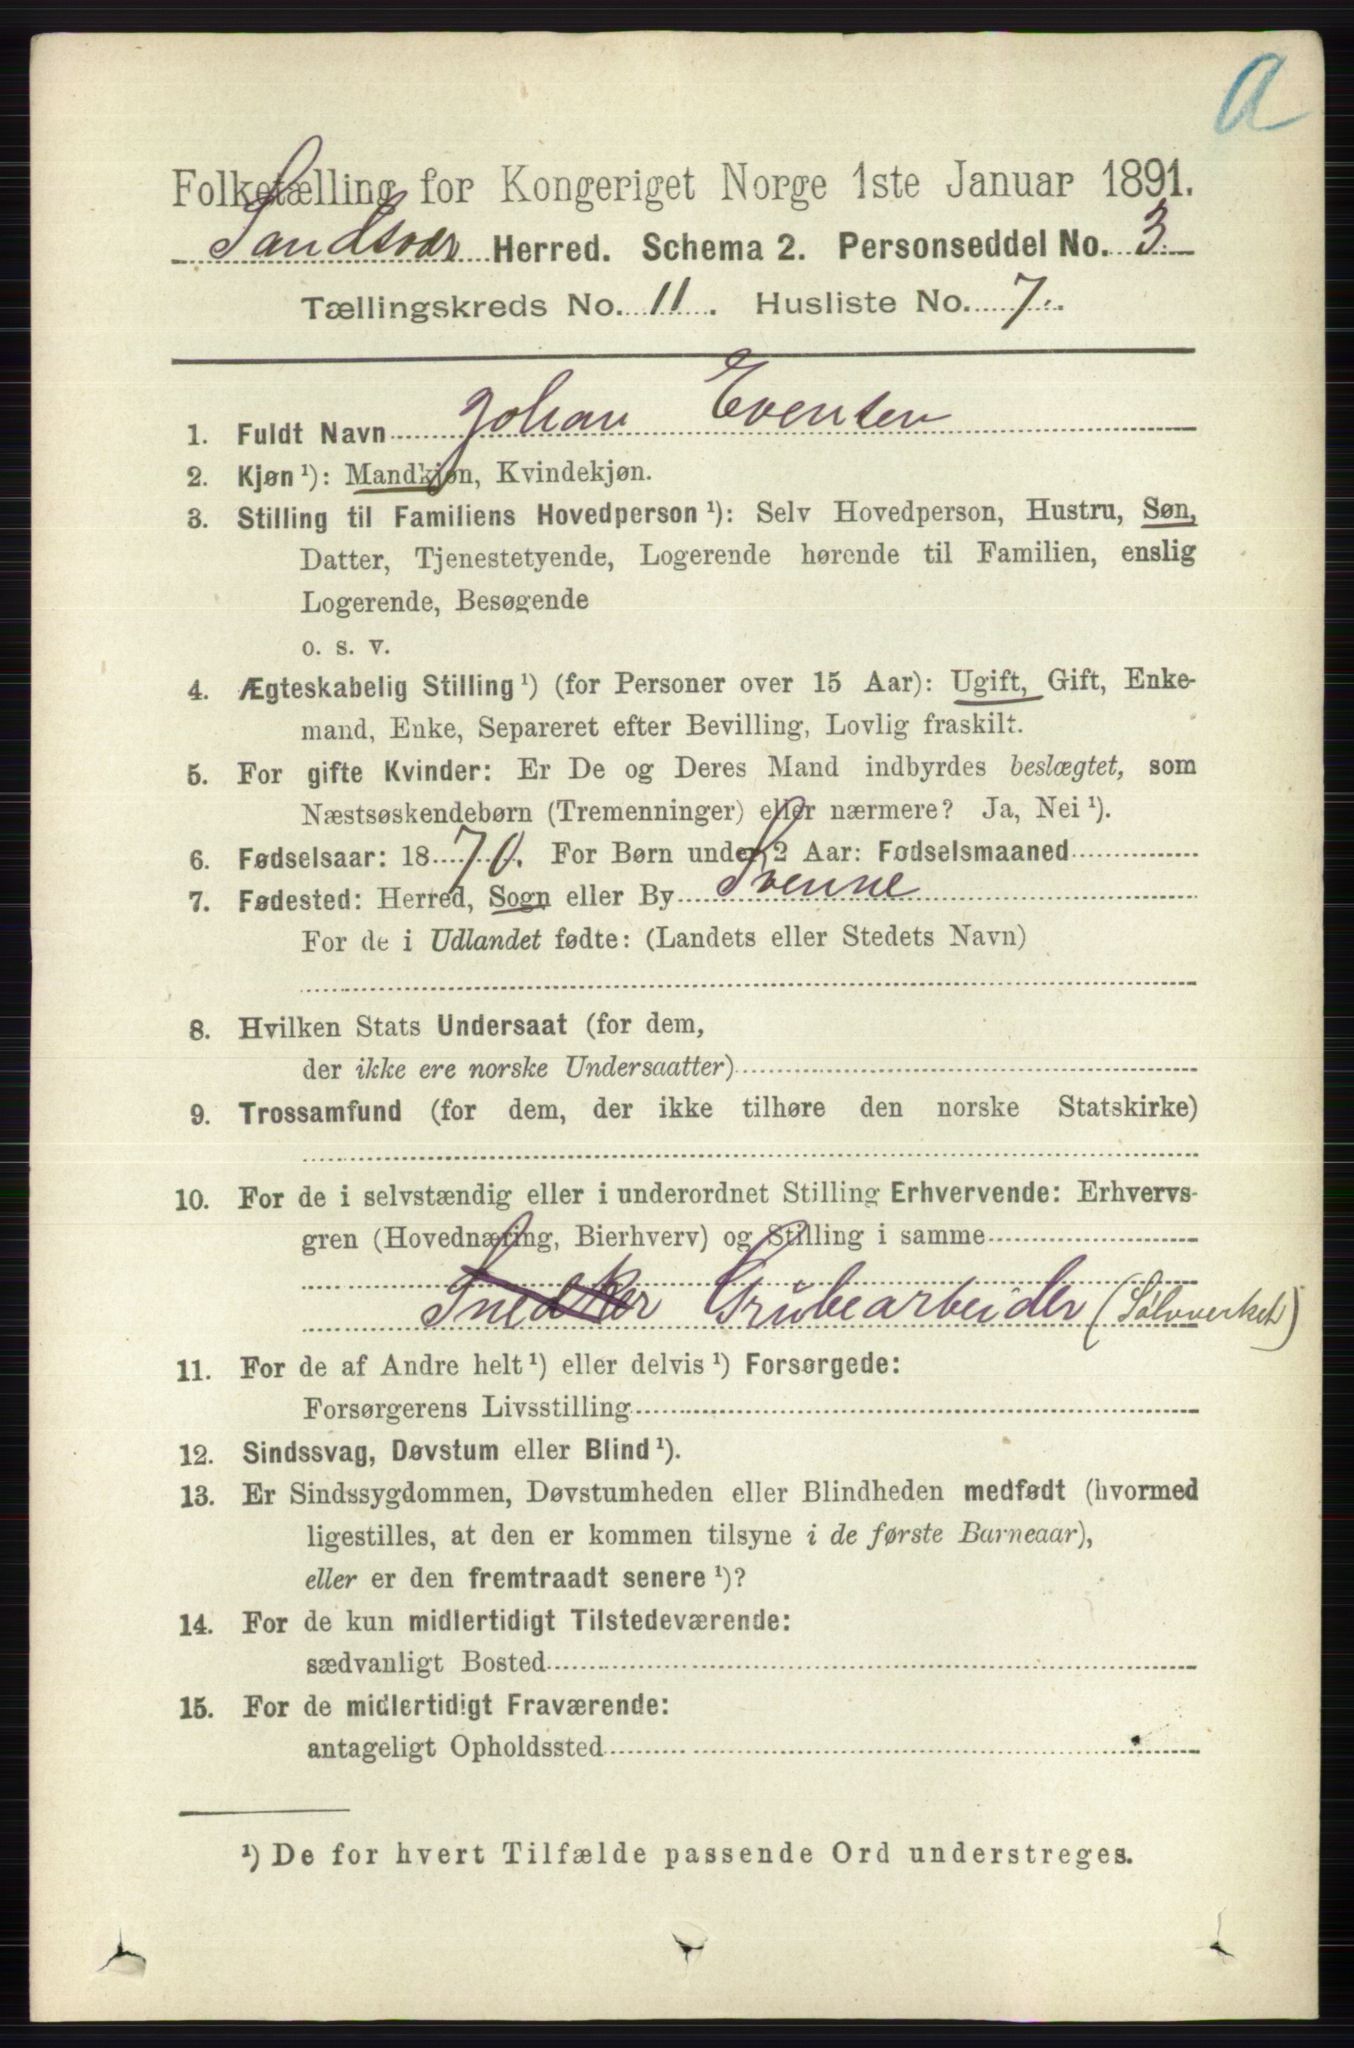 a
Folketælling for Kongeriget Norge 1ste Januar 1891.
Sandsvær Herred. Schema 2. Personseddel No. 3.
Tællingskreds No. 11. Husliste No. 7.
1. Fuldt Navn Johan Evensen
2. Kjøn ¹): Mandkjøn, Kvindekjøn.
3. Stilling til Familiens Hovedperson ¹): Selv Hovedperson, Hustru, Søn,
Datter, Tjenestetyende, Logerende hørende til Familien, enslig
Logerende, Besøgende
o. s. v.
4. Ægteskabelig Stilling ¹) (for Personer over 15 Aar): Ugift, Gift, Enke-
mand, Enke, Separeret efter Bevilling, Lovlig fraskilt.
5. For gifte Kvinder: Er De og Deres Mand indbyrdes beslægtet, som
Næstsøskendebørn (Tremenninger) eller nærmere? Ja, Nei ¹).
6. Fødselsaar: 1870. For Børn under 2 Aar: Fødselsmaaned
7. Fødested: Herred, Sogn eller By Svenne
For de i Udlandet fødte: (Landets eller Stedets Navn)
8. Hvilken Stats Undersaat (for dem,
der ikke ere norske Undersaatter)
9. Trossamfund (for dem, der ikke tilhøre den norske Statskirke)
10. For de i selvstændig eller i underordnet Stilling Erhvervende: Erhvervs-
gren (Hovednæring, Bierhverv) og Stilling i samme
Snedker Grubearbeider (Sølvverket)
11. For de af Andre helt ¹) eller delvis ¹) Forsørgede:
Forsørgerens Livsstilling
12. Sindssvag, Døvstum eller Blind ¹).
13. Er Sindssygdommen, Døvstumheden eller Blindheden medfødt (hvormed
ligestilles, at den er kommen tilsyne i de første Barneaar),
eller er den fremtraadt senere ¹)?
14. For de kun midlertidigt Tilstedeværende:
sædvanligt Bosted
15. For de midlertidigt Fraværende:
antageligt Opholdssted
¹) De for hvert Tilfælde passende Ord understreges.